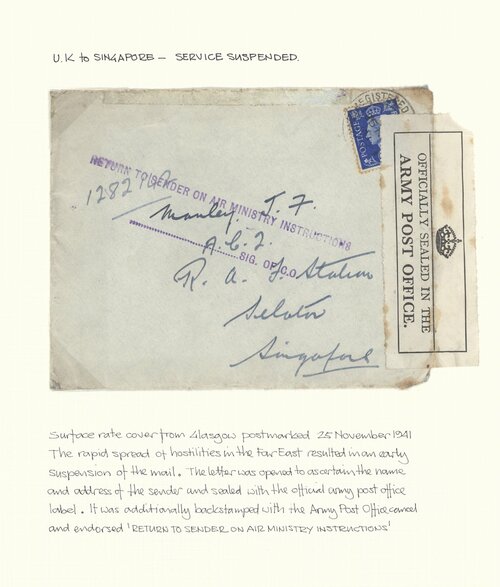 U.K to SINGAPORE — SERVICE SUSPENDED.
REGISTERED
POSTAGE
RETURN TO SENDER ON AIR MINISTRY INSTRUCTIONS
Manley. J. F.
A.C.2.
SIG. OF C.O.
R. A. F. Station
Seletar
Singapore
OFFICIALLY SEALED IN THE
ARMY POST OFFICE.
Surface rate cover from Glasgow postmarked 25 November 1941
The rapid spread of hostilities in the Far East resulted in an early
suspension of the mail. The letter was opened to ascertain the name
and address of the sender and sealed with the official army post office
label. It was additionally backstamped with the Army Post Office cancel
and endorsed 'RETURN TO SENDER ON AIR MINISTRY INSTRUCTIONS'